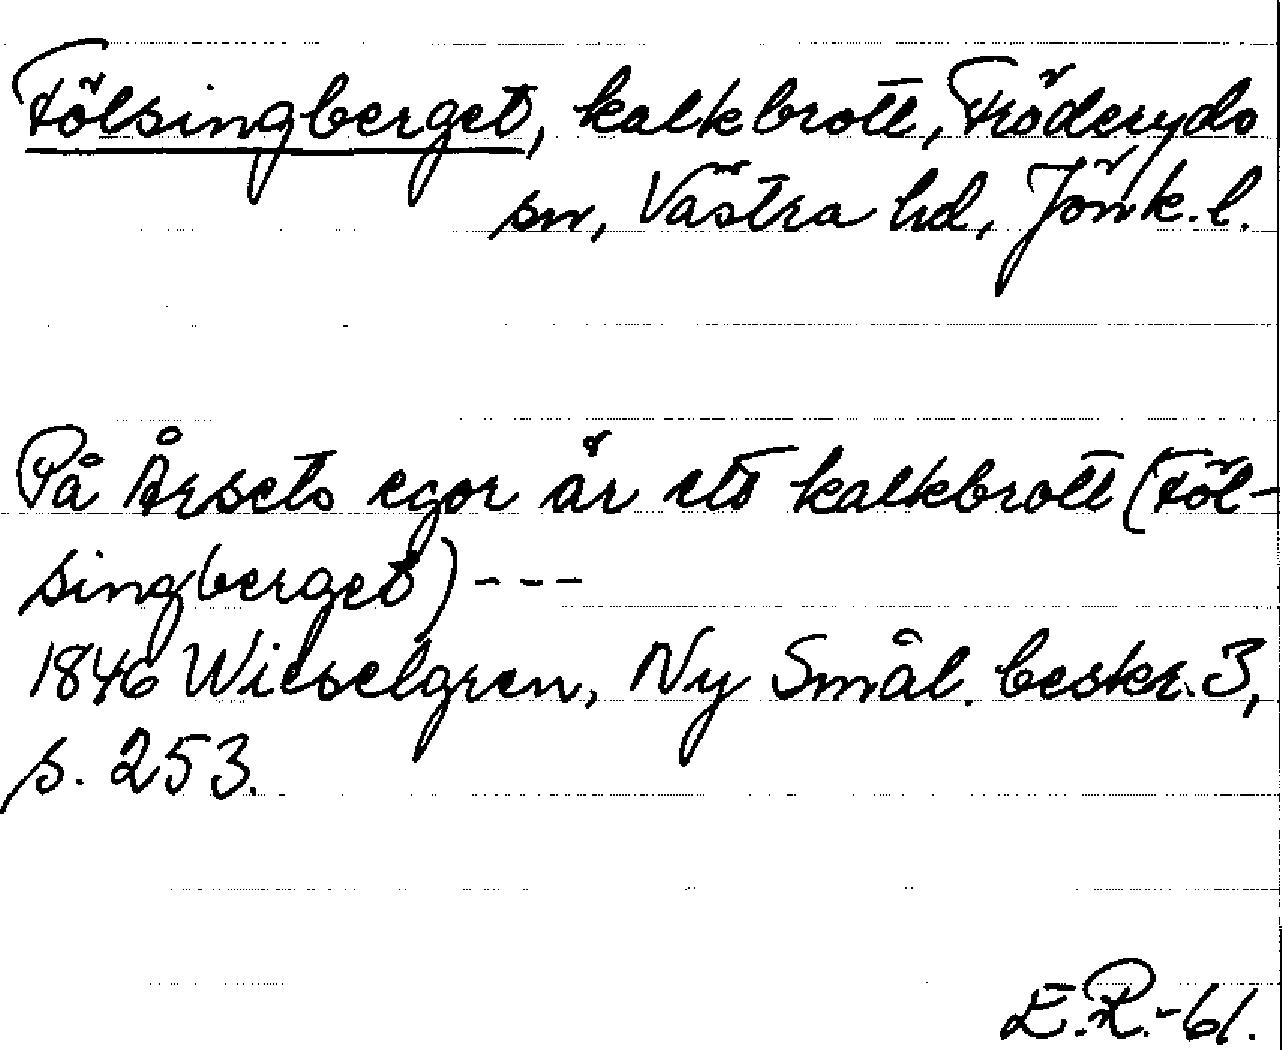 Fölsingberget, kalkbrott, Fröderyds
sn, Västra hd, Jönk. l.
På Årsets egor är ett kalkbrott (Föl-
singberget) ---
1846 Wieselgren, Ny Smål. beskr. 3,
s. 253.
E.R.-61.